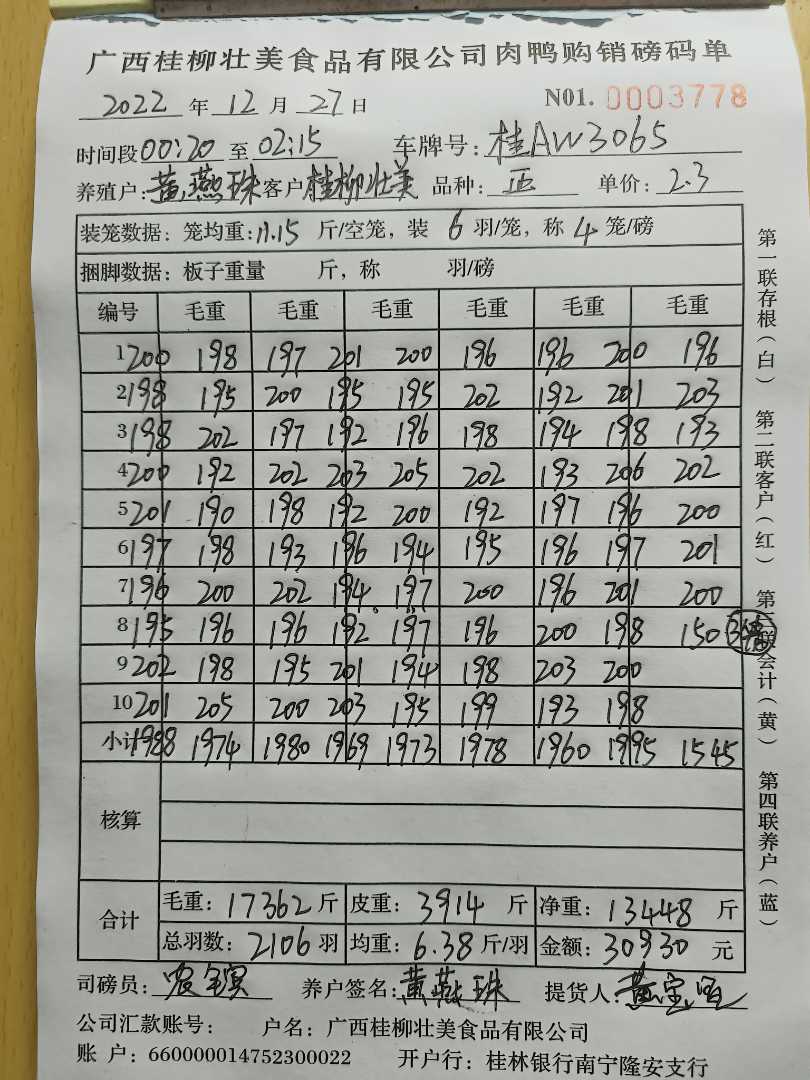 广西桂柳壮美食品有限公司肉鸭购销磅码单
2022 年 12 月 27 日 N01. 0003778
时间段 00:20 至 02:15 车牌号: 桂AW3065
养殖户: 黄燕珠 客户 桂柳壮美 品种: 正 单价: 2.3
装笼数据: 笼均重: 11.15 斤/空笼, 装 6 羽/笼, 称 4 笼/磅
捆脚数据: 板子重量 斤, 称 羽/磅
编号 毛重 毛重 毛重 毛重 毛重 毛重
1 200 198 197 201 200 196 196 200 196
2 198 195 200 195 195 202 192 201 203
3 198 202 197 192 196 198 194 198 193
4 200 192 202 203 205 202 193 206 202
5 201 190 198 192 200 192 197 196 200
6 197 198 193 196 194 195 196 197 201
7 196 200 202 194 197 200 196 201 200
8 195 196 196 192 197 196 200 198 150 3笼
9 202 198 195 201 194 198 203 200
10 201 205 200 203 195 199 193 198
小计 1988 1974 1980 1969 1973 1978 1960 1995 1545
核算
合计 毛重: 17362 斤 皮重: 3914 斤 净重: 13448 斤
总羽数: 2106 羽 均重: 6.38 斤/羽 金额: 30930 元
司磅员: 养户签名: 黄燕珠 提货人: 黄宝
公司汇款账号: 户名: 广西桂柳壮美食品有限公司
账 户: 660000014752300022 开户行: 桂林银行南宁隆安支行
第一联存根(白) 第二联客户(红) 第三联会计(黄) 第四联养户(蓝)